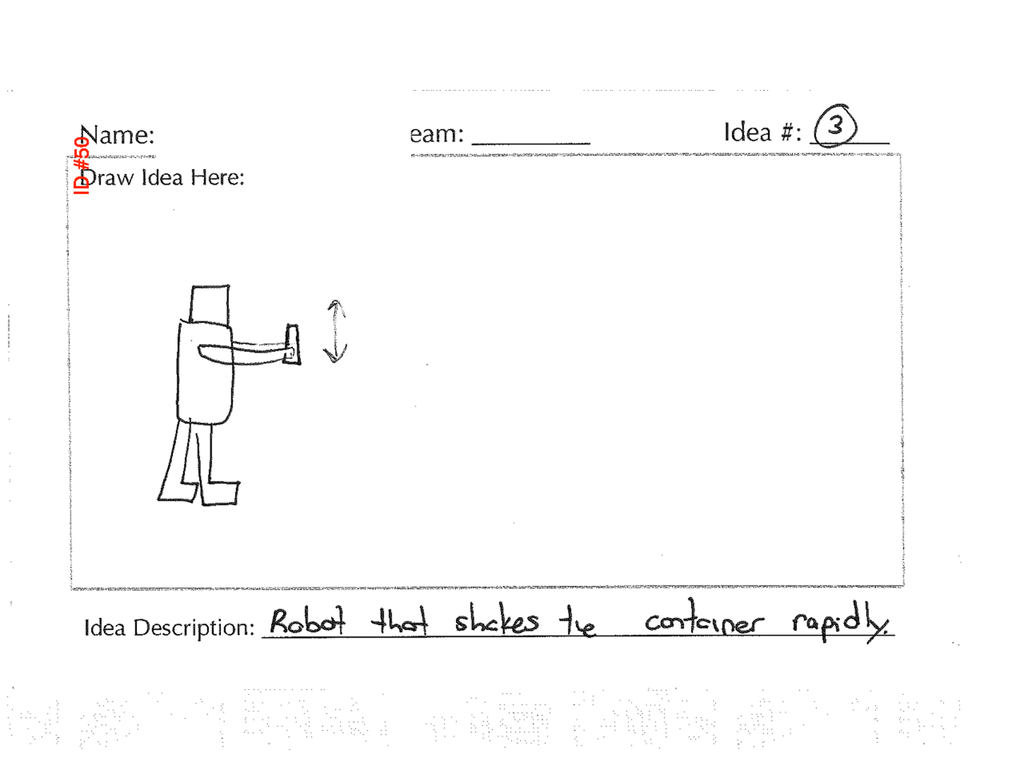 Name:
eam:
Idea #: 3
ID #50
Draw Idea Here:
Idea Description: Robot that shakes the container rapidly.